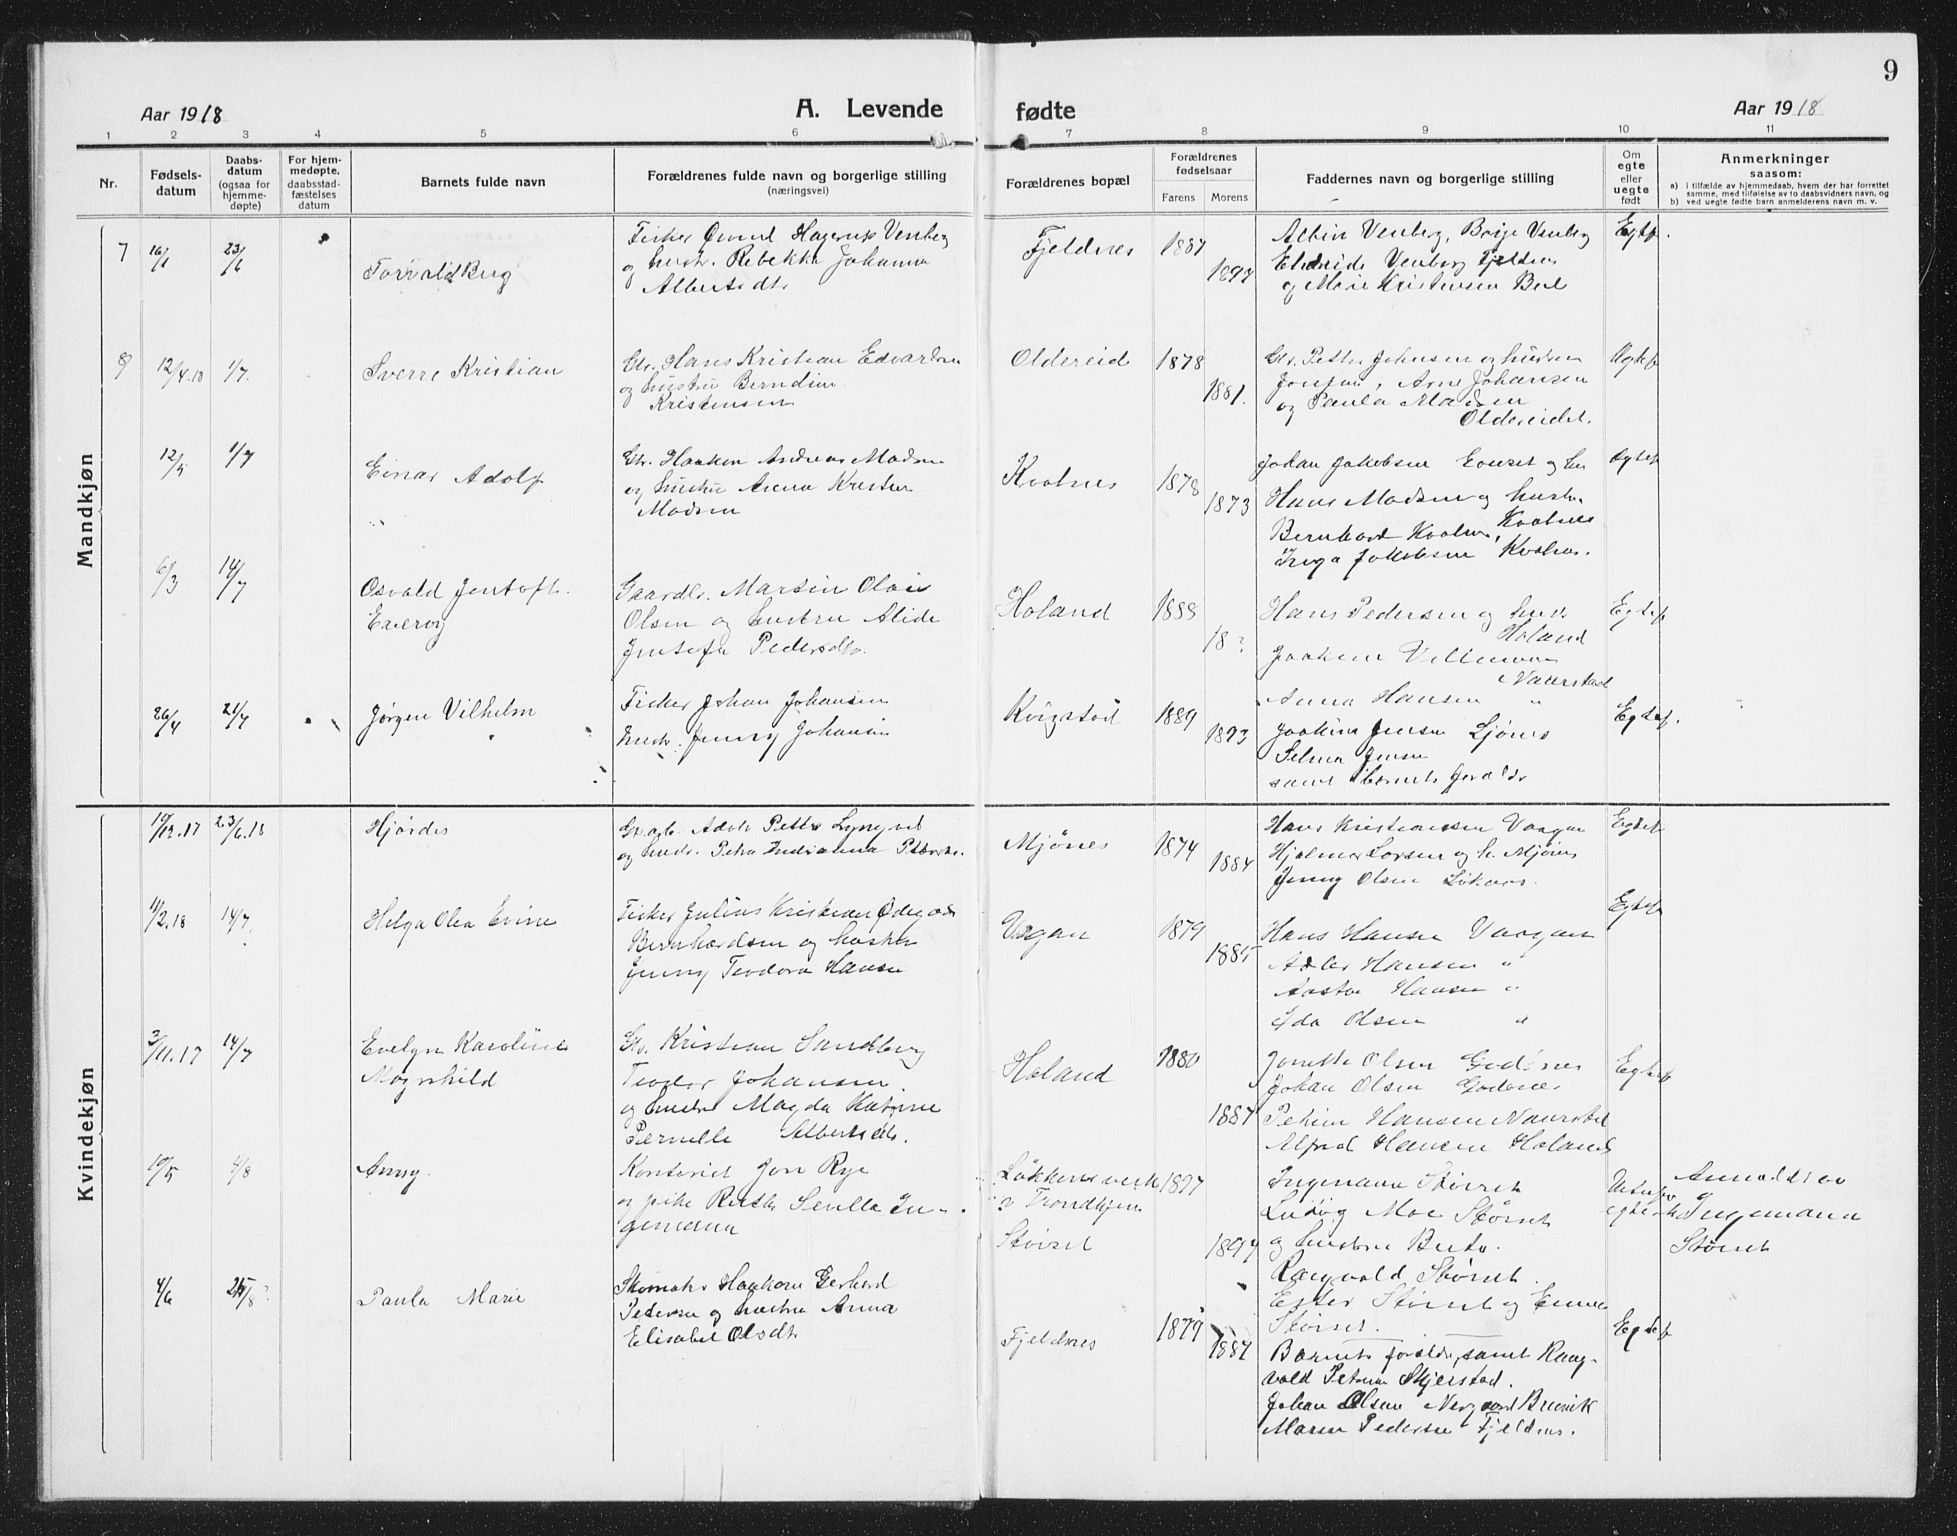 9
Aar 1918
A. Levende fødte
Aar 1918
1 2 3 4 5 6 7 8 9 10 11
Nr.
Fødsels-
datum
Daabs-
datum
(ogsaa for
hjemme-
døpte)
For hjem-
medøpte,
daabsstad-
fæstelses
datum
Barnets fulde navn
Forældrenes fulde navn og borgerlige stilling
(næringsvei)
Forældrenes bopæl
Forældrenes
fødselsaar
Farens Morens
Faddernes navn og borgerlige stilling
Om
egte
eller
uegte
født
Anmerkninger
saasom:
a) i tilfælde av hjemmedaab, hvem der har forrettet
samme, med tilføielse av to daabsvidners navn, og
b) ved uegte fødte barn anmelderens navn m. v.
Mandkjøn
7 16/1 23/6
Torvald Berg
Fisker Øivind Hagerup Venberg
og hustr. Rebekka Johanna
Albertsdtr
Fjeldnes
1887
Albin Venberg, Borje Venberg
Venberg Fjeldnes
og Marie Kristensen
Egtef.
8 12/4.18 1/7.
Sverre Kristian
Gbr. Hans Kristian Edvardsen
og hustru Berndine
Kristensen
Oldereid
1878
1881.
Gbr. Petter Johnsen og hustru
Arne Johansen
og Paula Madsen
Oldereidet.
Egtef
12/5 1/7
Einar Adolf
Gbr. Haakon Andreas Madsen
og hustru Anna Kristine
Madsen
Kvalnes
1878
1873
Johan Jakobsen og hu
Hans Madsen og hustru
Kvalnes
Bernhard Kvalnes,
Inga Jakobsen Kvalnes.
Egtef
6/3 14/7
Osvald Jentoft
Gaardbr. Martin Olai
Olsen og hustru Alide
Jentofte Pedersdtr.
Holand
1888
18 ?
Hans Pedersen og hust.
Holand
Joakim
Naurstad
Anna Hansen "
Egtef
26/4 21/7
Jørgen Vilhelm
Fisker Johan Johansen
hustr. Jenny Johansen
Kvigstad
1889
1893
Joakim Jensen Ljønes
Selma Jensen
samt barnets foreldr
Egtef.
Kvindekjøn
19/12.17 23/6.18
Hjørdis
Adolf Petter
og hustr. Petra Indianna
Mjønes
1874
1884
Hans Kristianssen Vaagan
Hjalmar Larsen og h. Mjønes
Jenny Olsen
Egtef
11/2.18 14/7
Helga Olea Evine
Fisker Julius Kristian Ødegard
Bernhardsen og hustru
Jenny Teodora Hansen
Vågan
1879
1885
Hans Hansen Vaagan
Hansen "
Hansen "
Ida Olsen "
Egtef
3/11.17 14/7
Evelyn Karoline
Magnhild
Gbr. Kristian Sandberg
Teodor Johansen
og hustru Magda Katrine
Pernille Albertsdtr.
Holand
1880
1887
Jonette Olsen Godønes
Johan Olsen Godønes
Petrine Hansen Naurstad
Alfred Hansen Holand
Egtef
19/5 4/8
Anny.
Kontorist Jon Rye
og pike Ruth Sevilla In-
gemann
Løkkens verk
v Trondhjem
Størset
1897
1897
Ingemann Størset
Ludvig Moe Størset
og hustru Berta.
Ragnvald Størset.
Ester Størset og Emma
Størset.
Ingemann
Størset
4/6 25/8?
Paula Marie
Skomaker Haakon Gerhard
Pedersen og hustru Anna
Elisabet Olsdtr
Fjeldnes
1879
1887
Barnets foreldre, samt Ragn-
vald Petersen Skjerstad.
Johan Olsen
Maren Pedersen Fjeldnes.
Egtef